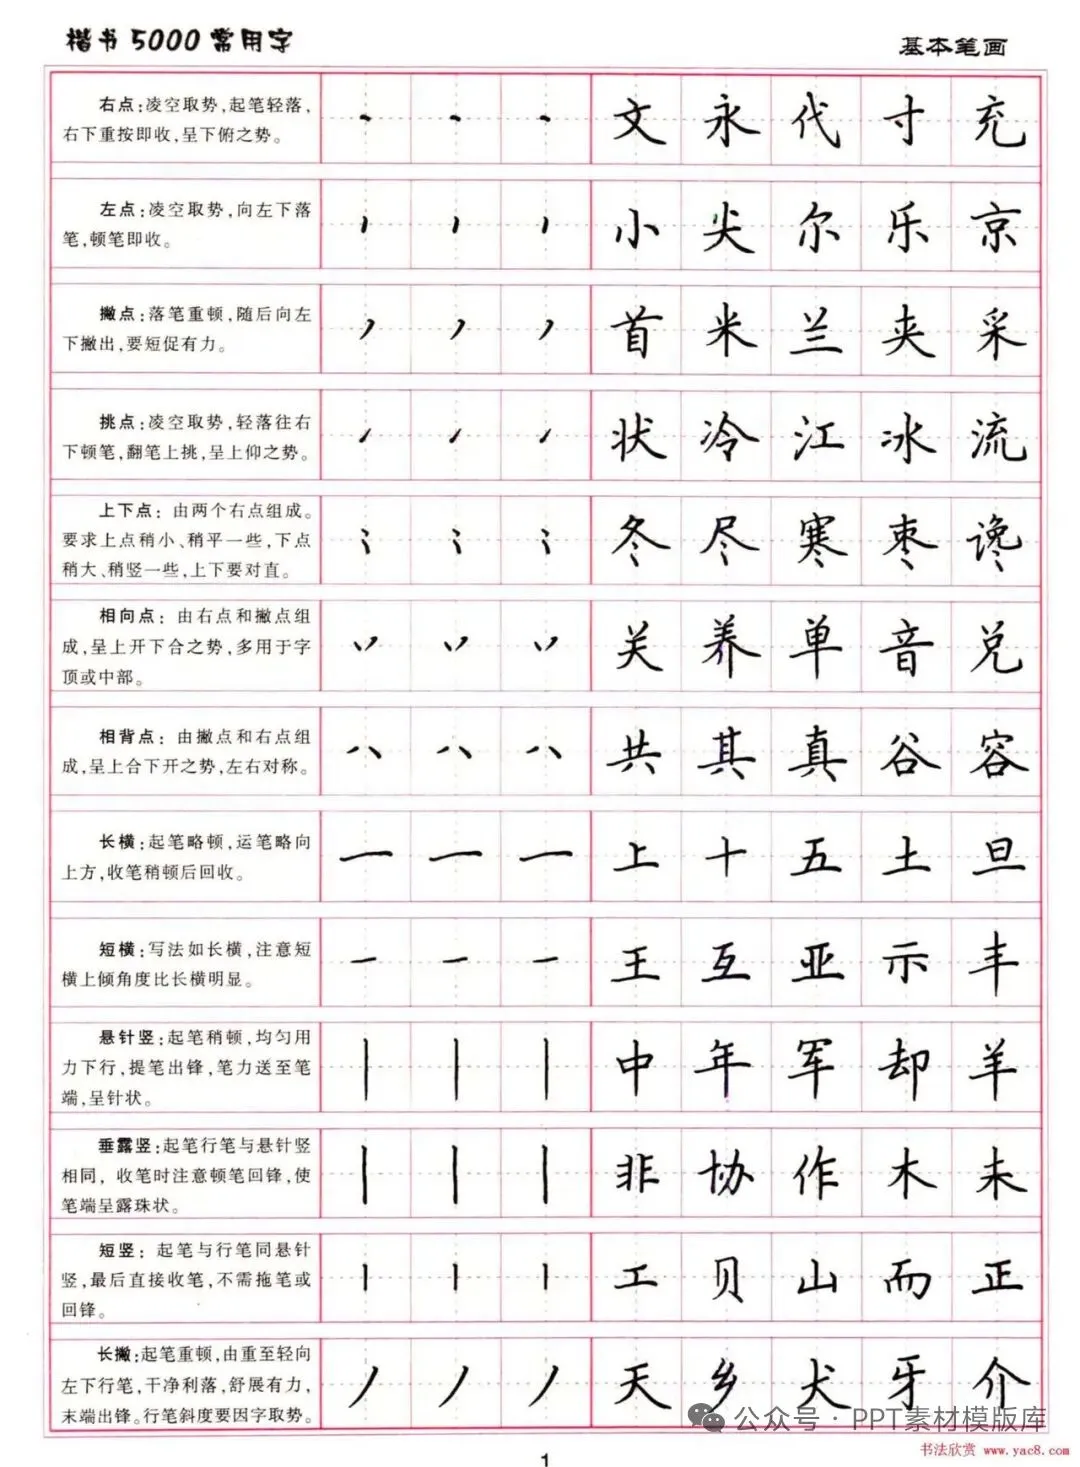 楷书5000常用字
基本笔画
右点:凌空取势,起笔轻落,
右下重按即收,呈下俯之势。
文 永 代 寸 充
左点:凌空取势,向左下落
笔,顿笔即收。
小 尖 尔 乐 京
撇点:落笔重顿,随后向左
下撇出,要短促有力。
首 米 兰 夹 采
挑点:凌空取势,轻落往右
下顿笔,翻笔上挑,呈上仰之势。
状 冷 江 冰 流
上下点:由两个右点组成。
要求上点稍小、稍平一些,下点
稍大、稍竖一些,上下要对直。
冬 尽 寒 枣 谗
相向点:由右点和撇点组
成,呈上开下合之势,多用于字
顶或中部。
关 养 单 音 兑
相背点:由撇点和右点组
成,呈上合下开之势,左右对称。
共 其 真 谷 容
长横:起笔略顿,运笔略向
上方,收笔稍顿后回收。
上 十 五 土 旦
短横:写法如长横,注意短
横上倾角度比长横明显。
王 互 亚 示 丰
悬针竖:起笔稍顿,均匀用
力下行,提笔出锋,笔力送至笔
端,呈针状。
中 年 军 却 羊
垂露竖:起笔行笔与悬针竖
相同,收笔时注意顿笔回锋,使
笔端呈露珠状。
非 协 作 木 未
短竖:起笔与行笔同悬针
竖,最后直接收笔,不需拖笔或
回锋。
工 贝 山 而 正
长撇:起笔重顿,由重至轻向
左下行笔,干净利落,舒展有力,
末端出锋。行笔斜度要因字取势。
天 乡 犬 牙 介
公众号·PPT素材模版库
1
书法欣赏 www.yac8.com